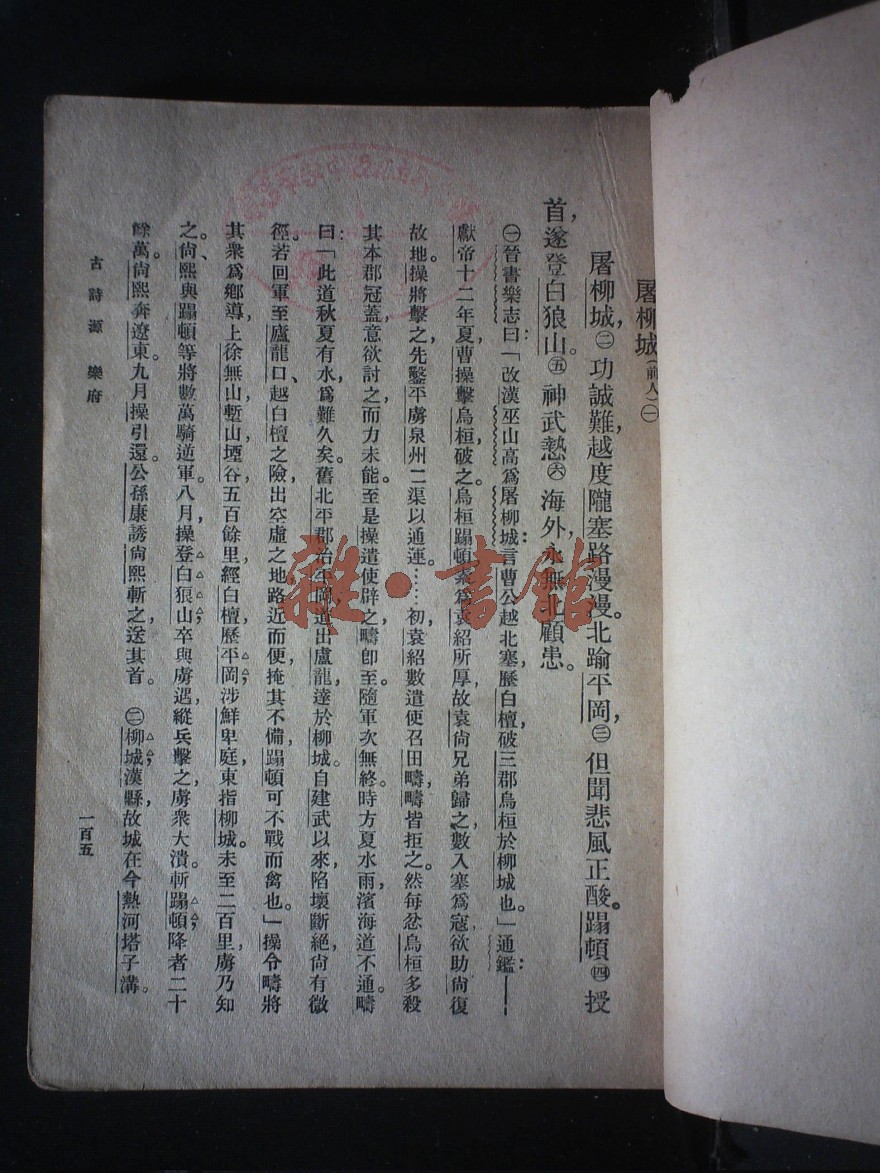 屠柳城(前人)㊀
屠柳城㊁功誠難,越度隴塞路漫漫。北踰平岡㊂但聞悲風正酸。蹋頓㊃授
首,遂登白狼山。㊄神武慹㊅海外,永無北顧患。
㊀晉書樂志曰:「改漢巫山高爲屠柳城,言曹公越北塞,歷白檀,破三郡烏桓於柳城也。」通鑑:——
獻帝十二年夏,曹操擊烏桓,破之。烏桓蹋頓衆爲袁紹所厚,故袁尙兄弟歸之,數入塞爲寇,欲助尙復
故地。操將擊之,先鑿平虜泉州二渠以通運。……初,袁紹數遣使召田疇,疇皆拒之。然每忿烏桓多殺
其本郡冠蓋,意欲討之而力未能。至是操遣使辟之,疇卽至。隨軍次無終。時方夏水雨,濱海道不通。疇
曰:「此道秋夏有水,爲難久矣。舊北平郡治平岡,道出盧龍,達於柳城。自建武以來,陷壞斷絕,尙有微
徑。若回軍至盧龍口、越白檀之險,出空虛之地,路近而便,掩其不備,蹋頓可不戰而禽也。」操令疇將
其衆爲鄉導,上徐無山,塹山堙谷,五百餘里,經白檀,歷平岡,涉鮮卑庭,東指柳城。未至二百里,虜乃知
之。尙、熙與蹋頓等將數萬騎逆軍。八月,操登白狼山,卒與虜遇,縱兵擊之,虜衆大潰。斬蹋頓,降者二十
餘萬。尙熙奔遼東。九月,操引還。公孫康誘尙熙斬之,送其首。 ㊁柳城,漢縣,故城在今熱河塔子溝。
古詩源 樂府
一百五
雜·書館